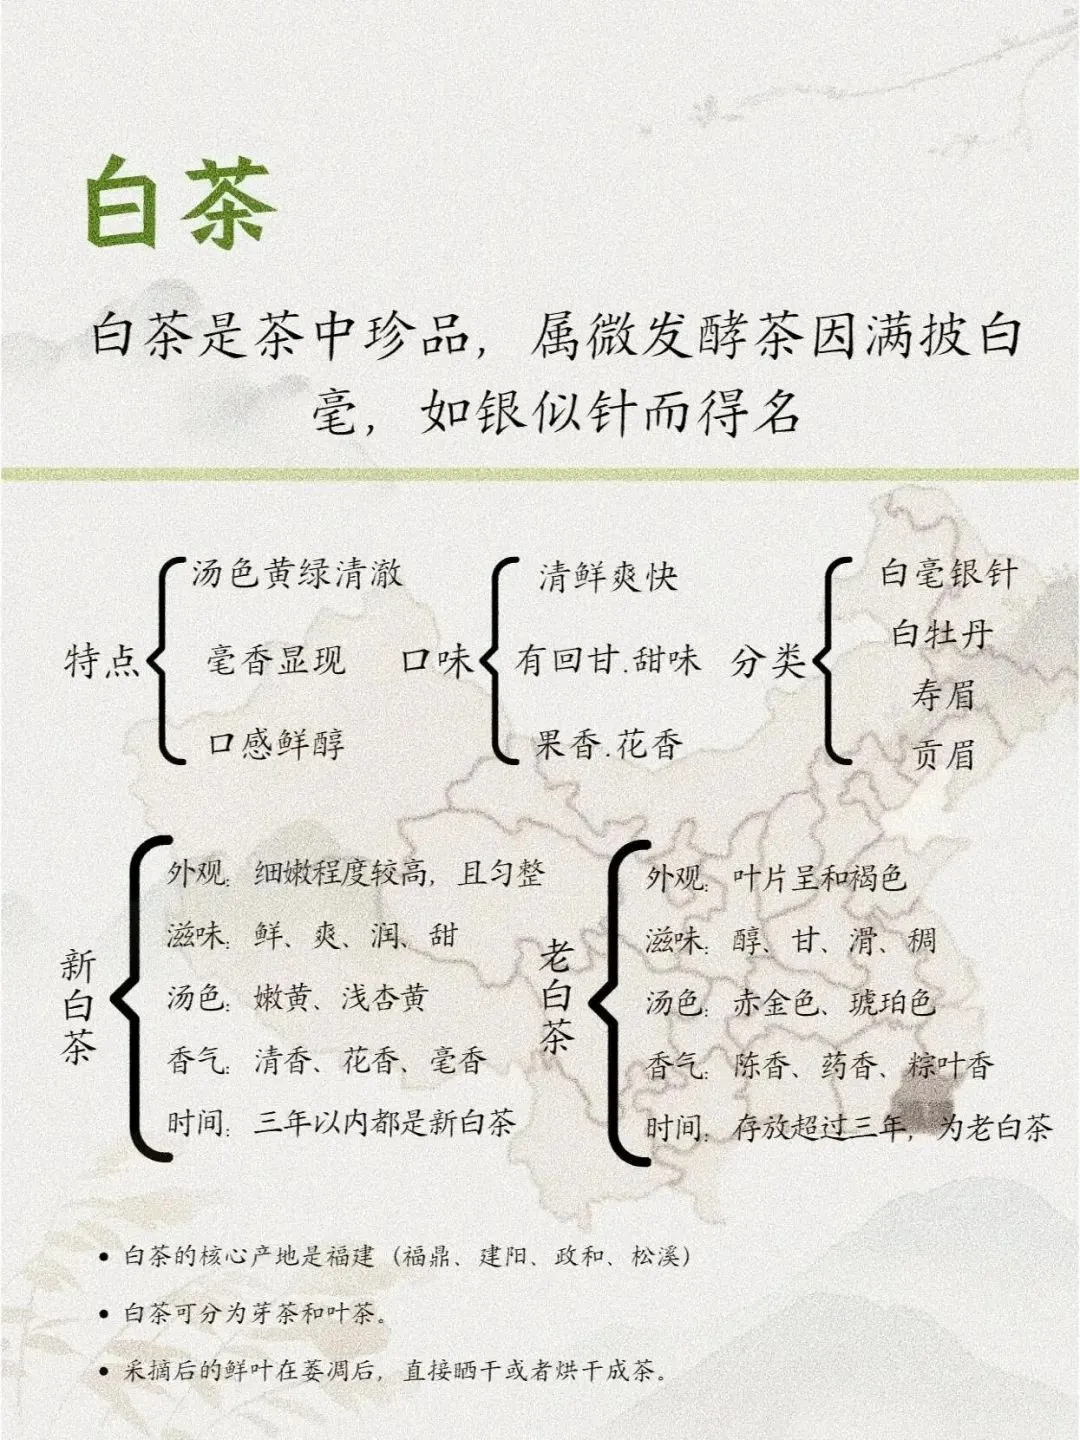 白茶
白茶是茶中珍品，属微发酵茶因满披白
毫，如银似针而得名
特点
汤色黄绿清澈
毫香显现
口感鲜醇
口味
清鲜爽快
有回甘.甜味
果香.花香
分类
白毫银针
白牡丹
寿眉
贡眉
新白茶
外观：细嫩程度较高，且匀整
滋味：鲜、爽、润、甜
汤色：嫩黄、浅杏黄
香气：清香、花香、毫香
时间：三年以内都是新白茶
老白茶
外观：叶片呈和褐色
滋味：醇、甘、滑、稠
汤色：赤金色、琥珀色
香气：陈香、药香、粽叶香
时间：存放超过三年，为老白茶
• 白茶的核心产地是福建（福鼎、建阳、政和、松溪）
• 白茶可分为芽茶和叶茶。
• 采摘后的鲜叶在萎凋后，直接晒干或者烘干成茶。